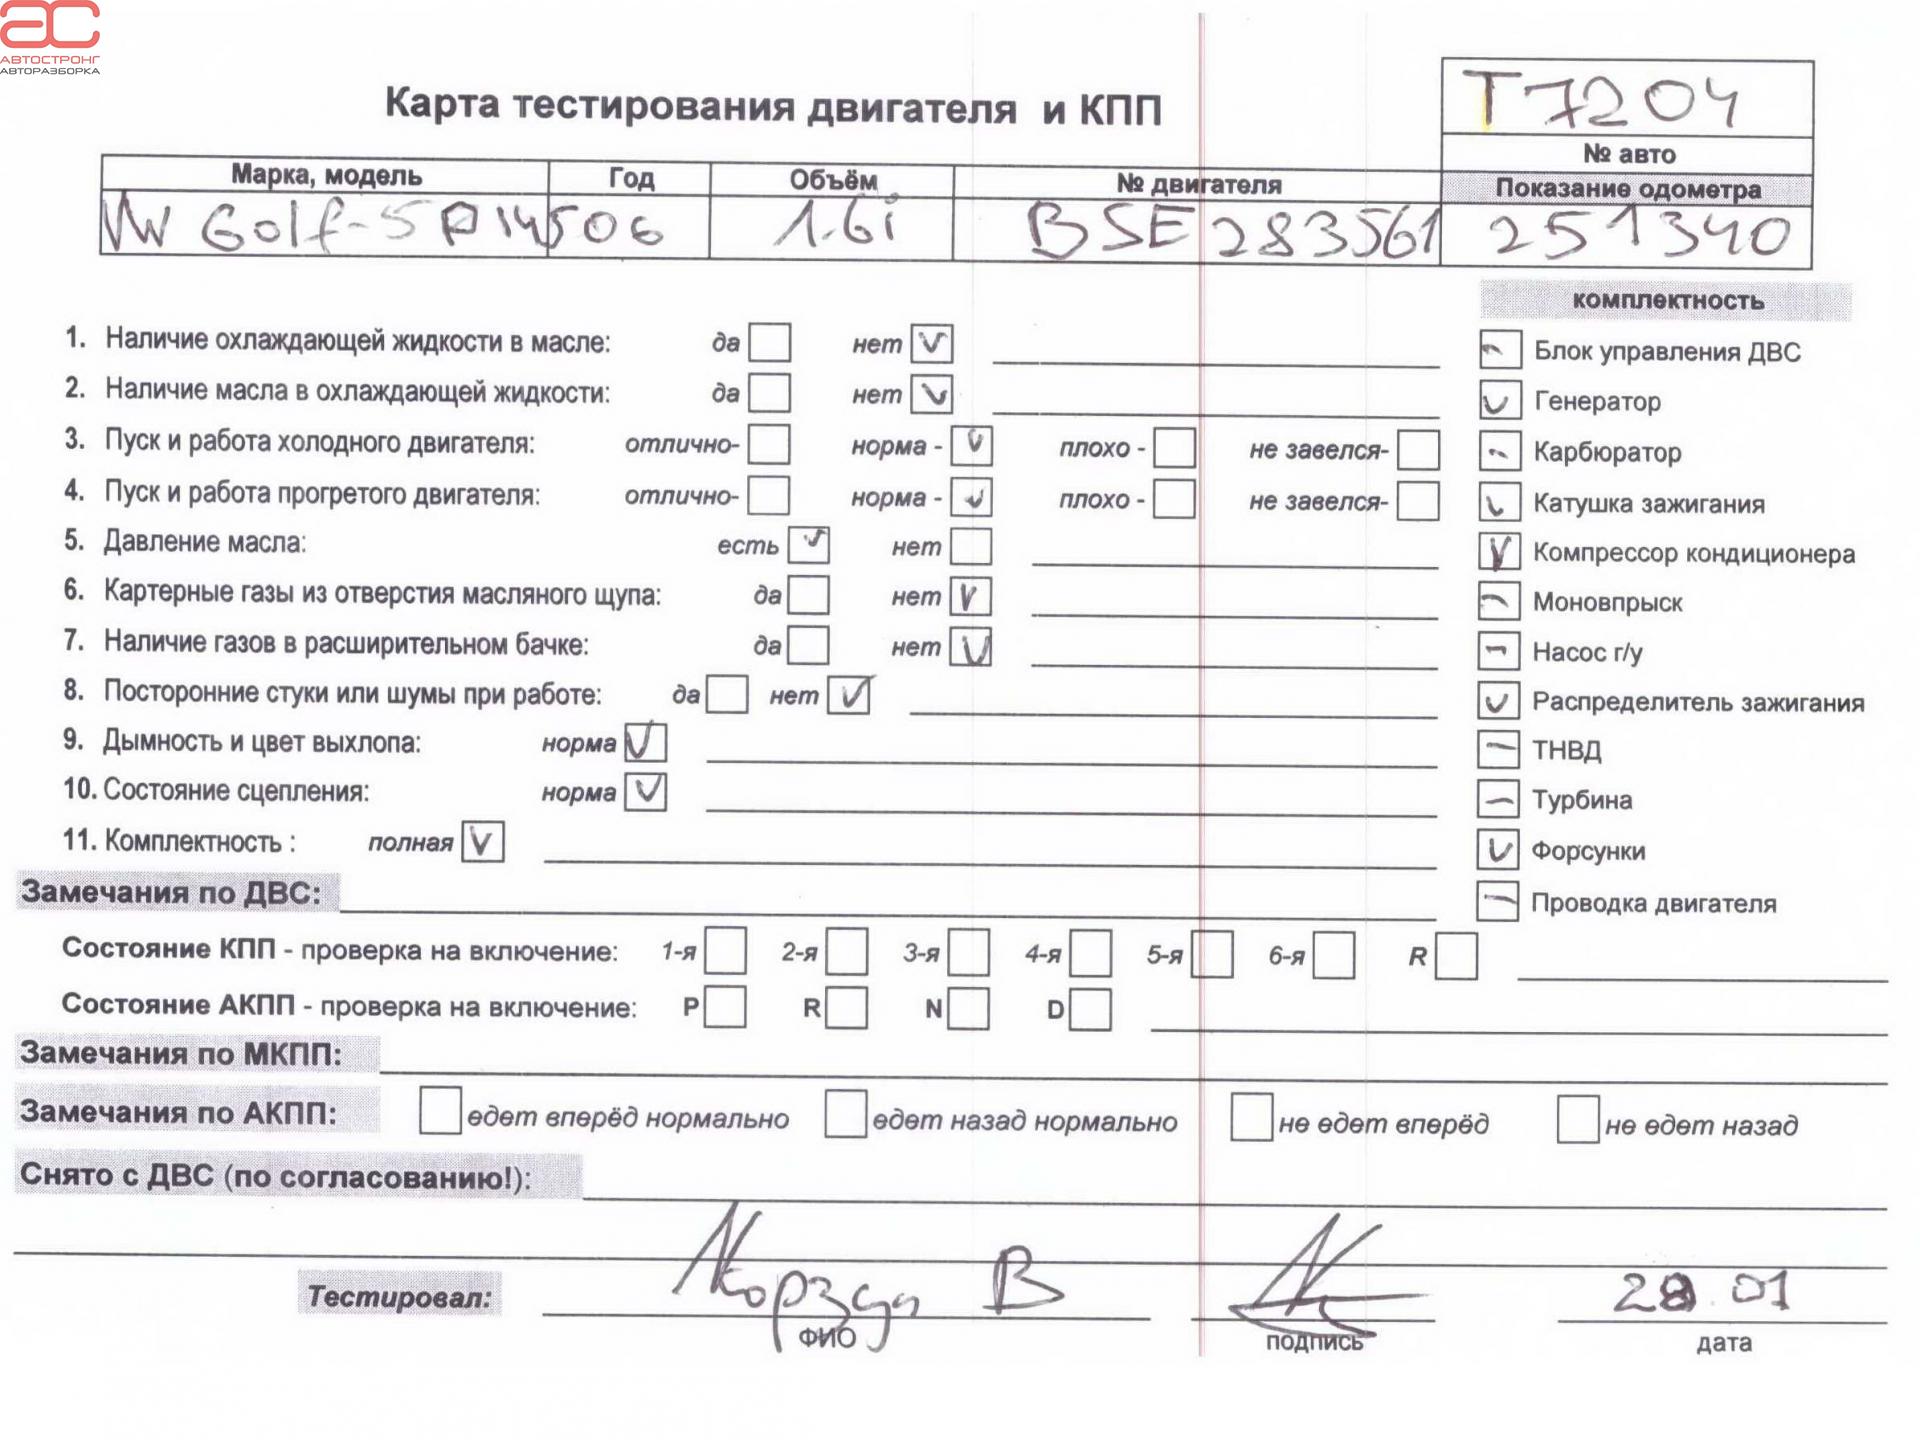 АС
АВТОСТРОНГ
АВТОРАЗБОРКА
Карта тестирования двигателя и КПП
Т 7204
№ авто
Марка, модель Год Объём № двигателя Показание одометра
VW Golf-5 06 1.6i BSE 283561 251340
комплектность
1. Наличие охлаждающей жидкости в масле: да нет
2. Наличие масла в охлаждающей жидкости: да нет
3. Пуск и работа холодного двигателя: отлично- норма - плохо - не завелся-
4. Пуск и работа прогретого двигателя: отлично- норма - плохо - не завелся-
5. Давление масла: есть нет
6. Картерные газы из отверстия масляного щупа: да нет
7. Наличие газов в расширительном бачке: да нет
8. Посторонние стуки или шумы при работе: да нет
9. Дымность и цвет выхлопа: норма
10. Состояние сцепления: норма
11. Комплектность : полная
Блок управления ДВС
Генератор
Карбюратор
Катушка зажигания
Компрессор кондиционера
Моновпрыск
Насос г/у
Распределитель зажигания
ТНВД
Турбина
Форсунки
Проводка двигателя
Замечания по ДВС:
Состояние КПП - проверка на включение: 1-я 2-я 3-я 4-я 5-я 6-я R
Состояние АКПП - проверка на включение: P R N D
Замечания по МКПП:
Замечания по АКПП: едет вперёд нормально едет назад нормально не едет вперёд не едет назад
Снято с ДВС (по согласованию!):
Тестировал: В 28.01
ФИО подпись дата